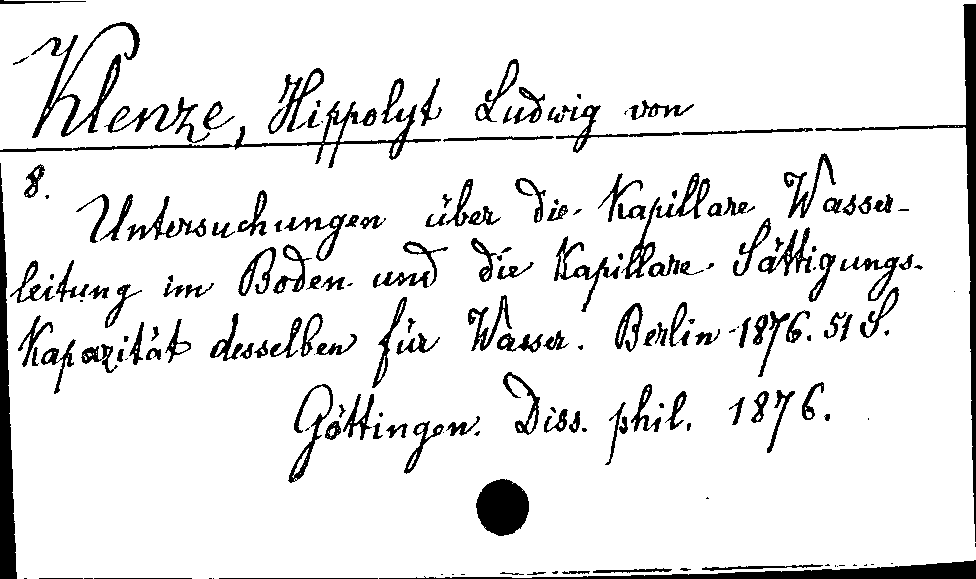 Klenze, Hippolyt Ludwig von
8.
Untersuchungen über die Kapillare Wasser-
leitung im Boden und die Kapillare Sättigungs-
Kapazität desselben für Wasser. Berlin 1876. 51 S.
Göttingen. Diss. phil. 1876.